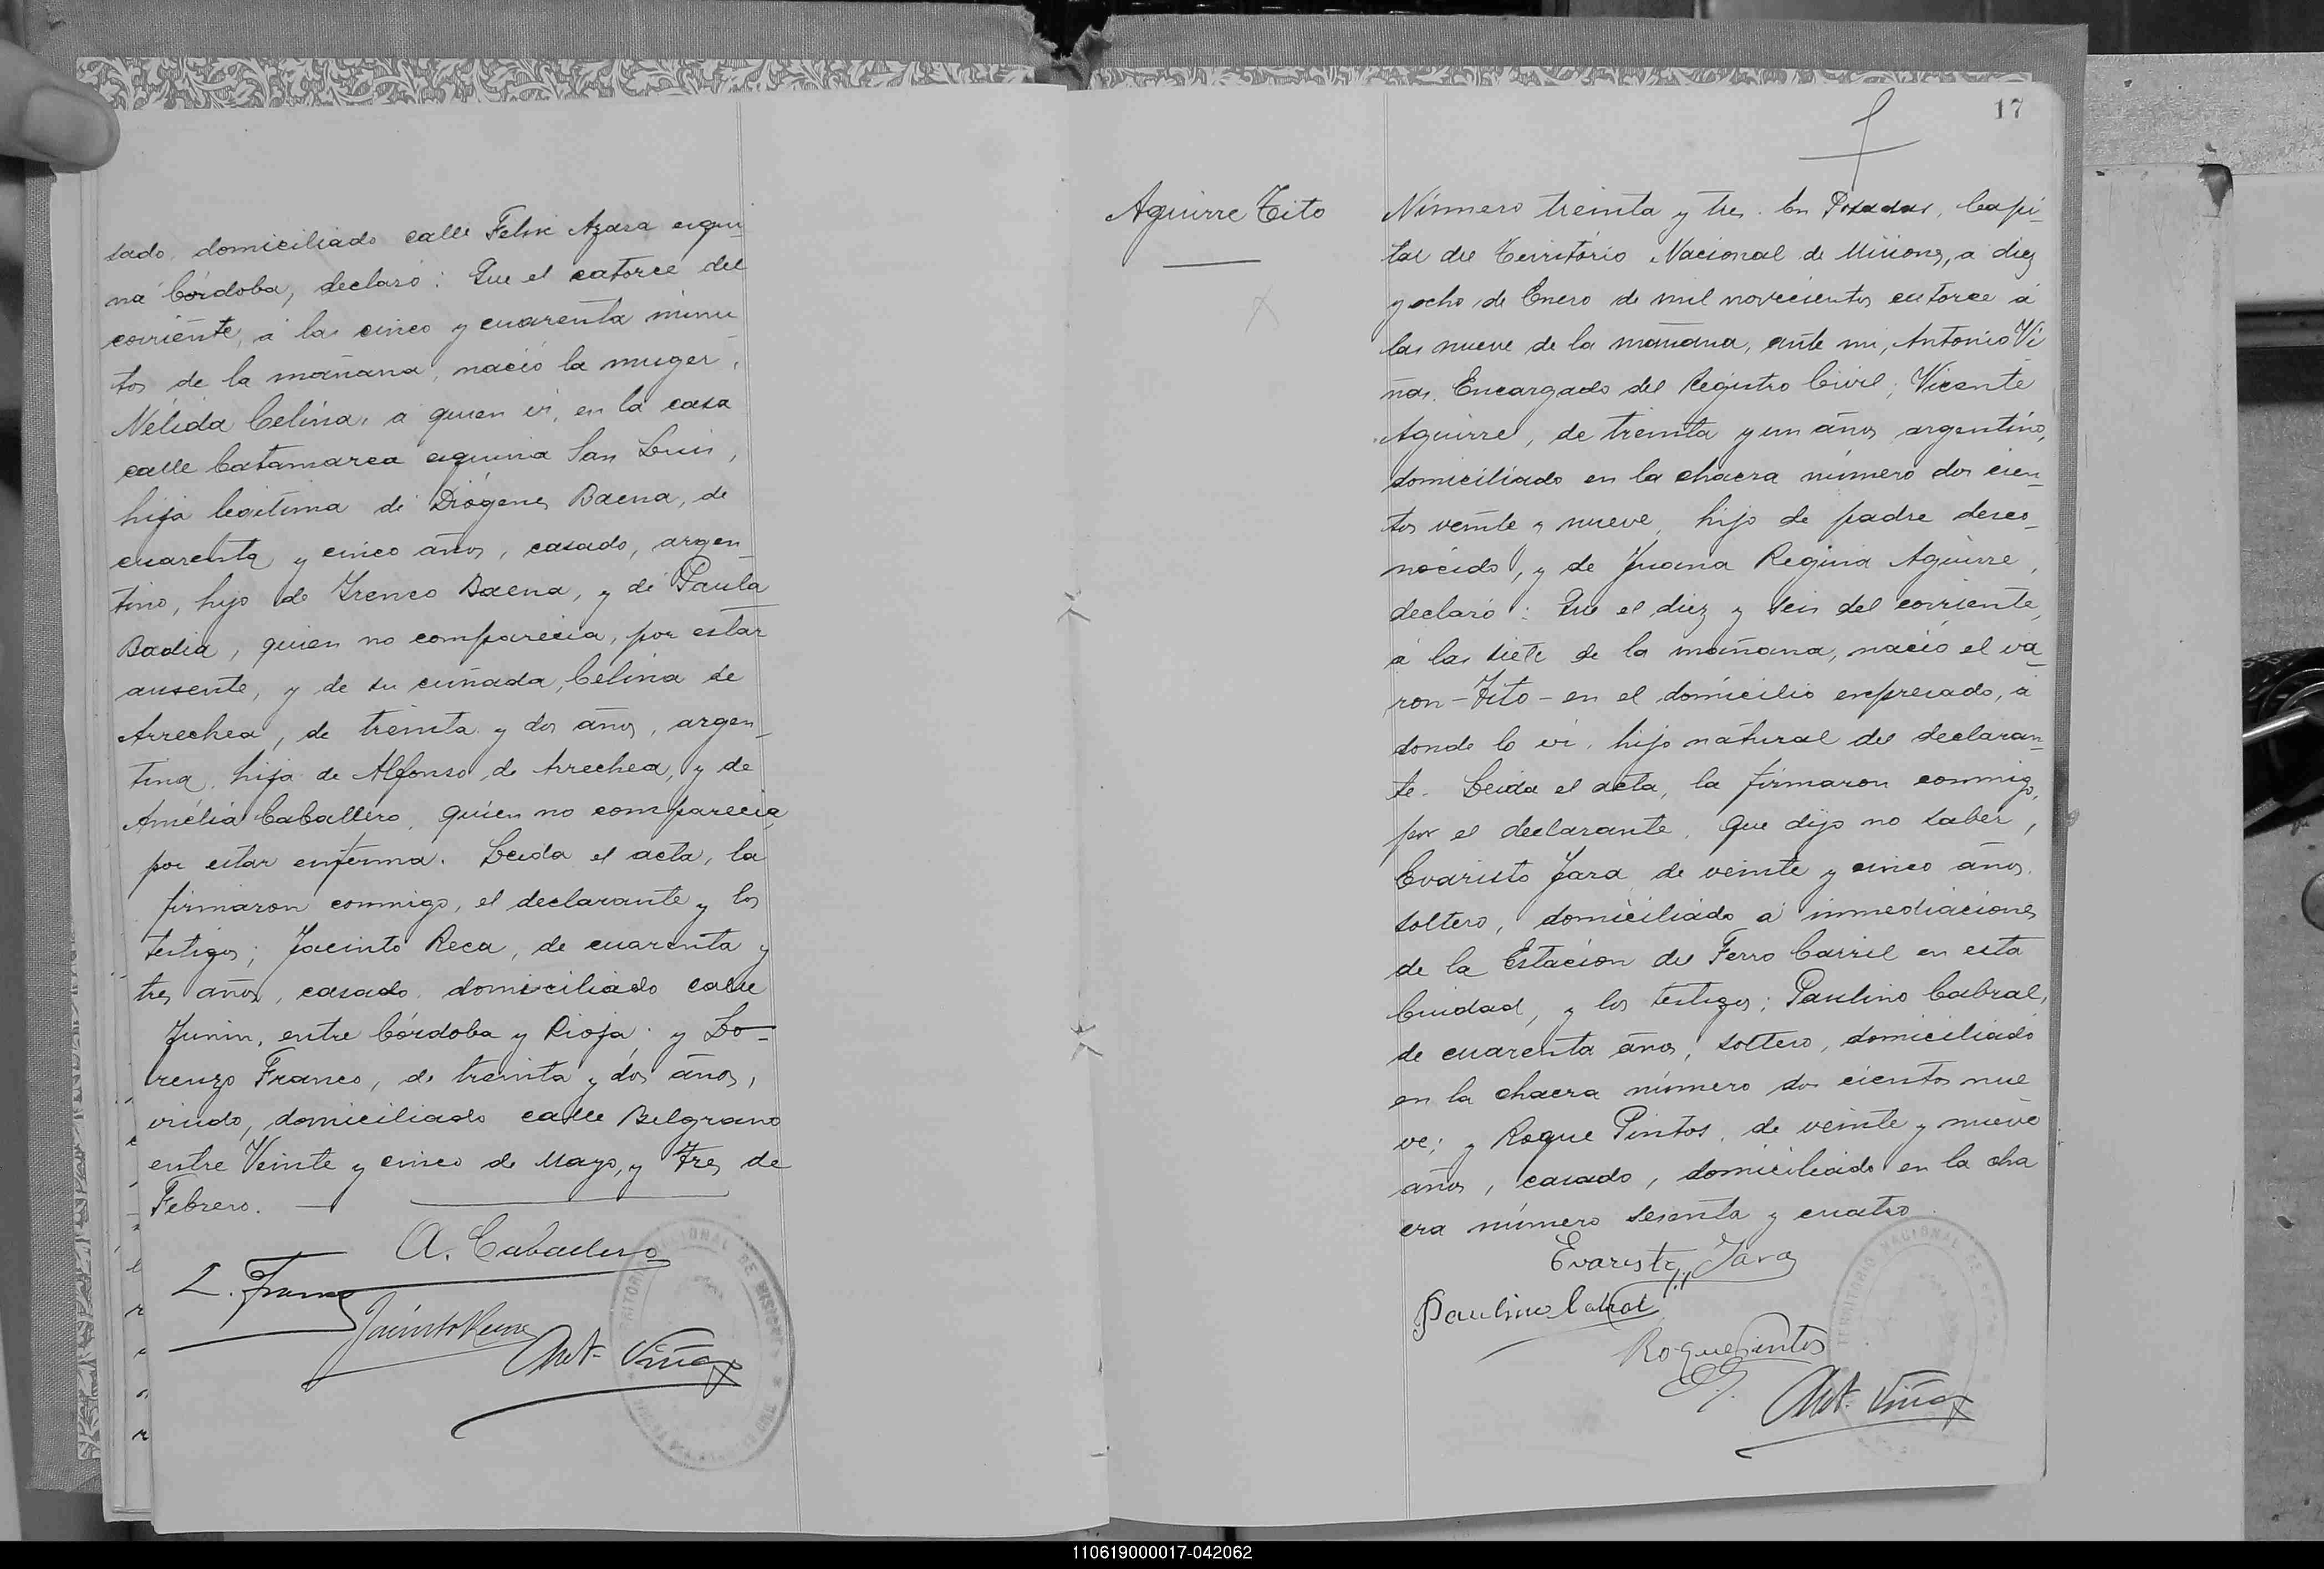 sado, domiciliado calle Felix Azara esqui-
na Córdoba, declaró: Que el catorce del
corriente, á las cinco y cuarenta minu-
tos de la mañana, nació la muger,
Nélida Celina, a quien ví, en la casa
calle Catamarca esquina San Luis,
hija legítima de Diógenes Baena, de
cuarenta y cinco años, casado, argen-
tino, hijo de Ireneo Baena, y de Paula
Badia, quien no comparecía, por estar
ausente, y de su cuñada, Celina de
Arrechea, de treinta y dos años, argen-
tina, hija de Alfonso de Arrechea, y de
Amélia Caballero, quien no comparecia,
por estar enferma. Leida el acta, la
firmaron conmigo, el declarante y los
testigos; Jacinto Reca, de cuarenta y
tres años, casado, domiciliado calle
Junin, entre Córdoba y Rioja; y Lo-
renzo Franco, de treinta y dos años,
viudo, domiciliado calle Belgrano
entre Veinte y cinco de Mayo, y Tres de
Febrero.
A. Caballero
L. Franco
Jacinto Reca
Ant. Viñas
17
Aguirre Tito
Número treinta y tres. En Posadas, Capi-
tal del Território Nacional de Misiones, a diez
y ocho de Enero de mil novecientos catorce á
las nueve de la mañana, ante mi, Antonio Vi
ñas, Encargado del Registro Civil; Vicente
Aguirre, de treinta y un años, argentino,
domiciliado en la chacra número dos cien-
tos veinte y nueve, hijo de padre desco-
nocido, y de Juana Regina Aguirre,
declaró: Que el diez y seis del corriente,
á las siete de la mañana, nació el va-
ron - Tito - en el domicilio expresado, a
donde lo ví, hijo natural del declaran-
te. Leida el acta, la firmaron conmigo,
por el declarante, que dijo no saber,
Evaristo Jara, de veinte y cinco años,
soltero, domiciliado a inmediaciones
de la Estacion del Ferro Carril en esta
Ciudad, y los testigos; Paulino Cabral,
de cuarenta años, soltero, domiciliado
en la chacra número dos cientos nue
ve; y Roque Pintos, de veinte y nueve
años, casado, domiciliado en la cha
cra número sesenta y cuatro
Evaristo Jara
Paulino Cabral
Roque Pintos
Ant. Viñas
TERRITORIO NACIONAL DE
110619000017-042062